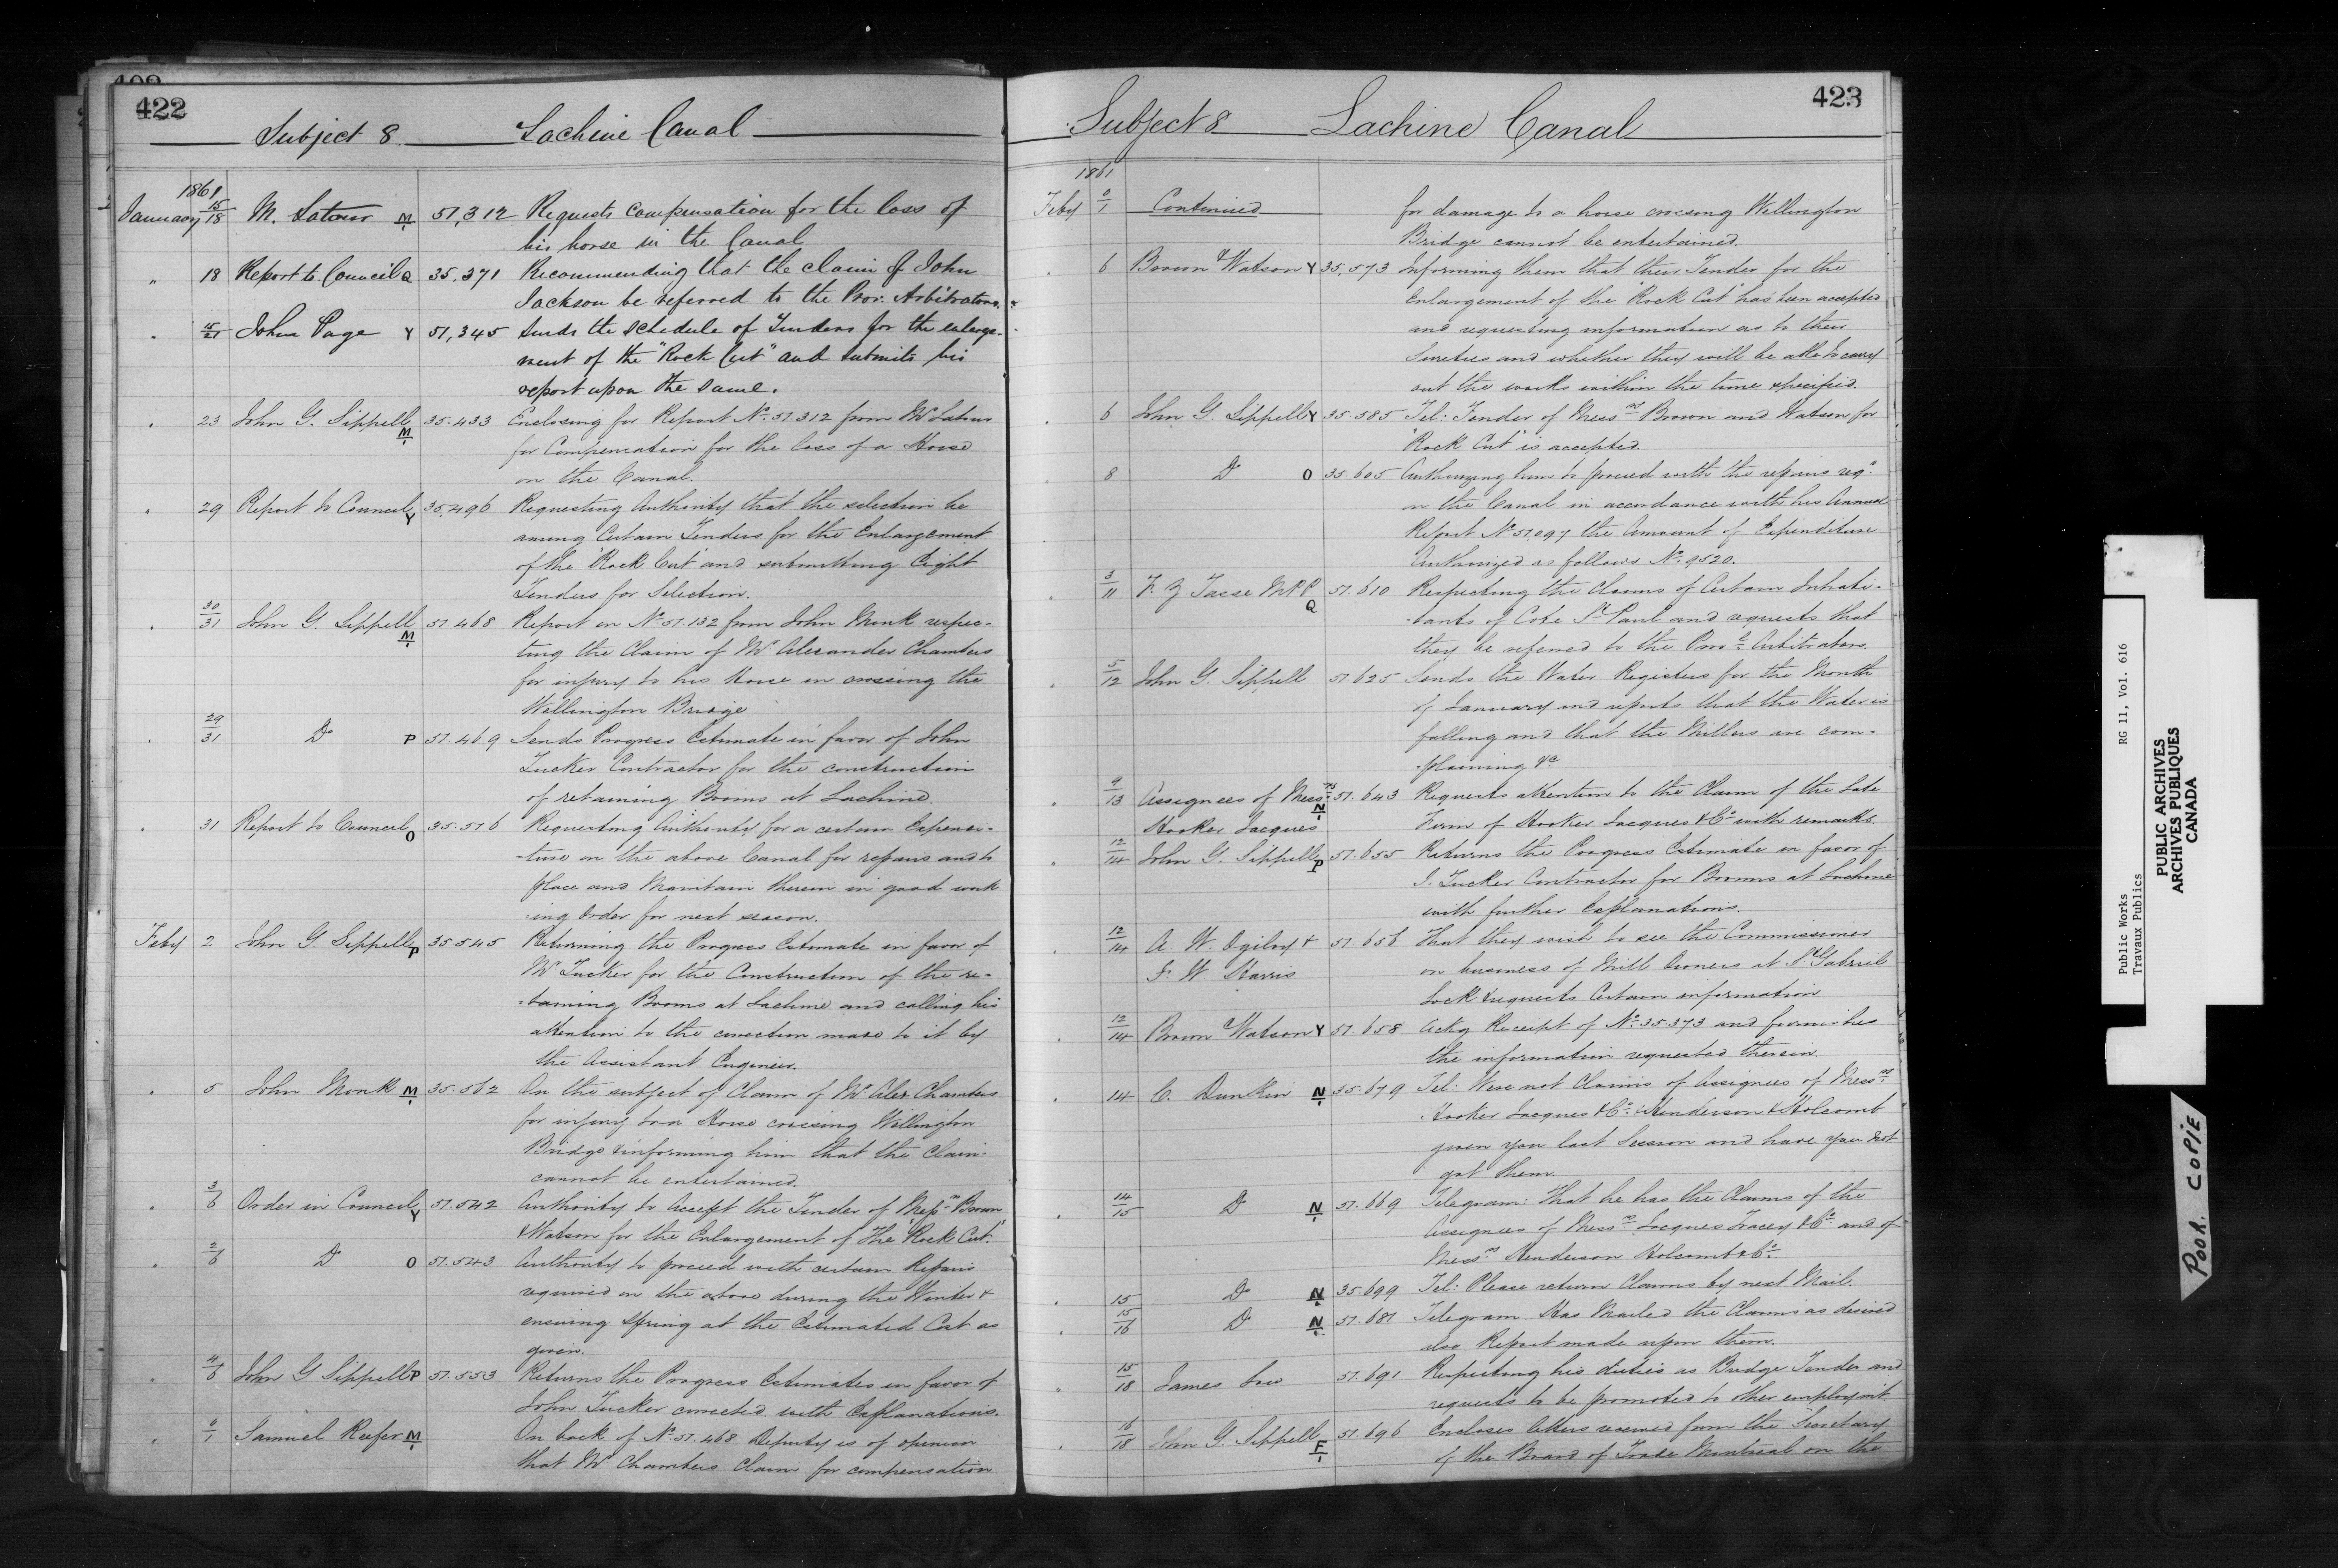 422
Subject 8 Lachine Canal
1861
January 15/18 M. Latour M 51,312 Requests compensation for the loss of
his horse in the Canal
" 18 Report to Council Q 35,371 Recommending that the claim of John
Jackson be referred to the Prov. Arbitrators.
21 John Page Y 51,345 Sends the Schedule of Tenders for the enlarge-
ment of the "Rock Cut" and submits his
report upon the same.
23 John G. Sippell M 35.433 Enclosing for Report No 51.312 from Mr Latour
for Compensation for the loss of a Horse
on the Canal.
29 Report to Council Y 35,496 Requesting Authority that the selection be
among Certain Tenders for the Enlargement
of the "Rock Cut" and submitting Eight
Tenders for Selection.
30/31 John G. Sippell M 51.468 Report on No 51.132 from John Monk respec-
ting the Claim of Mr Alexander Chambers
for injury to his Horse in crossing the
Wellington Bridge
29/31 Do P 51.469 Sends Progress Estimate in favor of John
Tucker Contractor for the construction
of retaining Booms at Lachine.
31 Report to Council O 35.516 Requesting Authority for a certain Expendi-
-ture on the above Canal for repairs and to
place and Maintain therein in good work
ing Order for next season.
Feby 2 John G. Sippell P 35.545 Returning the Progress Estimate in favor of
Mr Tucker for the Construction of the re-
taining Booms at Lachine and calling his
attention to the correction made to it by
the Assistant Engineer.
5 John Monk M 35.562 On the subject of Claim of Mr Alex Chambers
for injury to a Horse crossing Wellington
Bridge & informing him that the Claim
cannot be entertained.
3/6 Order in Council Y 51.542 Authority to Accept the Tender of Messrs Brown
& Watson for the Enlargement of the "Rock Cut."
2/6 Do O 51.543 Authority to proceed with certain Repairs
required on the above during the Winter &
ensuing Spring at the Estimated Cost as
given.
4/6 John G Sippell P 51.553 Returns the Progress Estimates in favor of
John Tucker corrected with Explanations.
0/1 Samuel Keefer M On back of No 51.468 Deputy is of opinion
that Mr Chambers Claim for compensation
423
Subject 8 Lachine Canal
1861
Feby 0/1 Continued for damage to a horse crossing Wellington
Bridge cannot be entertained.
6 Brown & Watson Y 35,573 Informing them that their Tender for the
Enlargement of the "Rock Cut" has been accepted
and requesting information as to their
Sureties and whether they will be able to carry
out the works within the time specified.
6 John G. Sippell Y 35.585 Tel: Tender of Messrs Brown and Watson for
"Rock Cut" is accepted.
8 Do O 35.605 Authorizing him to proceed with the repairs reqd
on the Canal in accordance with his Annual
Report No 51.097 the Amount of Expenditure
Authorized as follows No 9520.
3/11 F. Z Tasse M.P.P. Q 51.610 Respecting the Claims of Certain Inhabi-
tants of Cote St Paul and requests that
they be referred to the Provl Arbitrators.
5/12 John G. Sippell 51.625 Sends the Water Registers for the Month
of January and reports that the Water is
falling and that the Millers are com-
plaining &c
9/13 Assignees of Messrs N 51.643 Requests attention to the Claim of the Late
Hooker Jacques Firm of Hooker Jacques & Co with remarks.
12/14 John G. Sippell P 51.655 Returns the Progress Estimate in favor of
J. Tucker Contractor for Booms at Lachine
with further Explanations.
12/14 A. W. Ogilvy & 51.656 That they wish to see the Commissioner
W Harris on business of Mill Owners at St Gabriel
Lock & requests Certain information
12/14 Brown & Watson Y 51.658 Ackg Receipt of No 35.373 and furnishes
the information requested therein.
14 C. Dunkin N 35.679 Tel: Were not Claims of Assignees of Messrs
Hooker Jacques & Co & Henderson & Holcomb
given you last Session and have you not
got them.
14/15 Do N 51.669 Telegram: That he has the Claims of the
Assignees of Messrs Jacques Tracey & Co and of
Messrs Henderson Holcomb & Co.
15 Do N 35.699 Tel: Please return Claims by next Mail.
15/16 Do N 51.681 Telegram. Has Mailed the Claims as desired
also Report made upon them.
15/18 James 51.691 Respecting his duties as Bridge Tender and
requests to be promoted to other employmt.
16/18 John G. Sippell F 51.696 Encloses letters received from the Secretary
of the Board of Trade Montreal on the
Public Works
Travaux Publics
RG 11, Vol. 616
PUBLIC ARCHIVES
ARCHIVES PUBLIQUES
CANADA
POOR COPIE